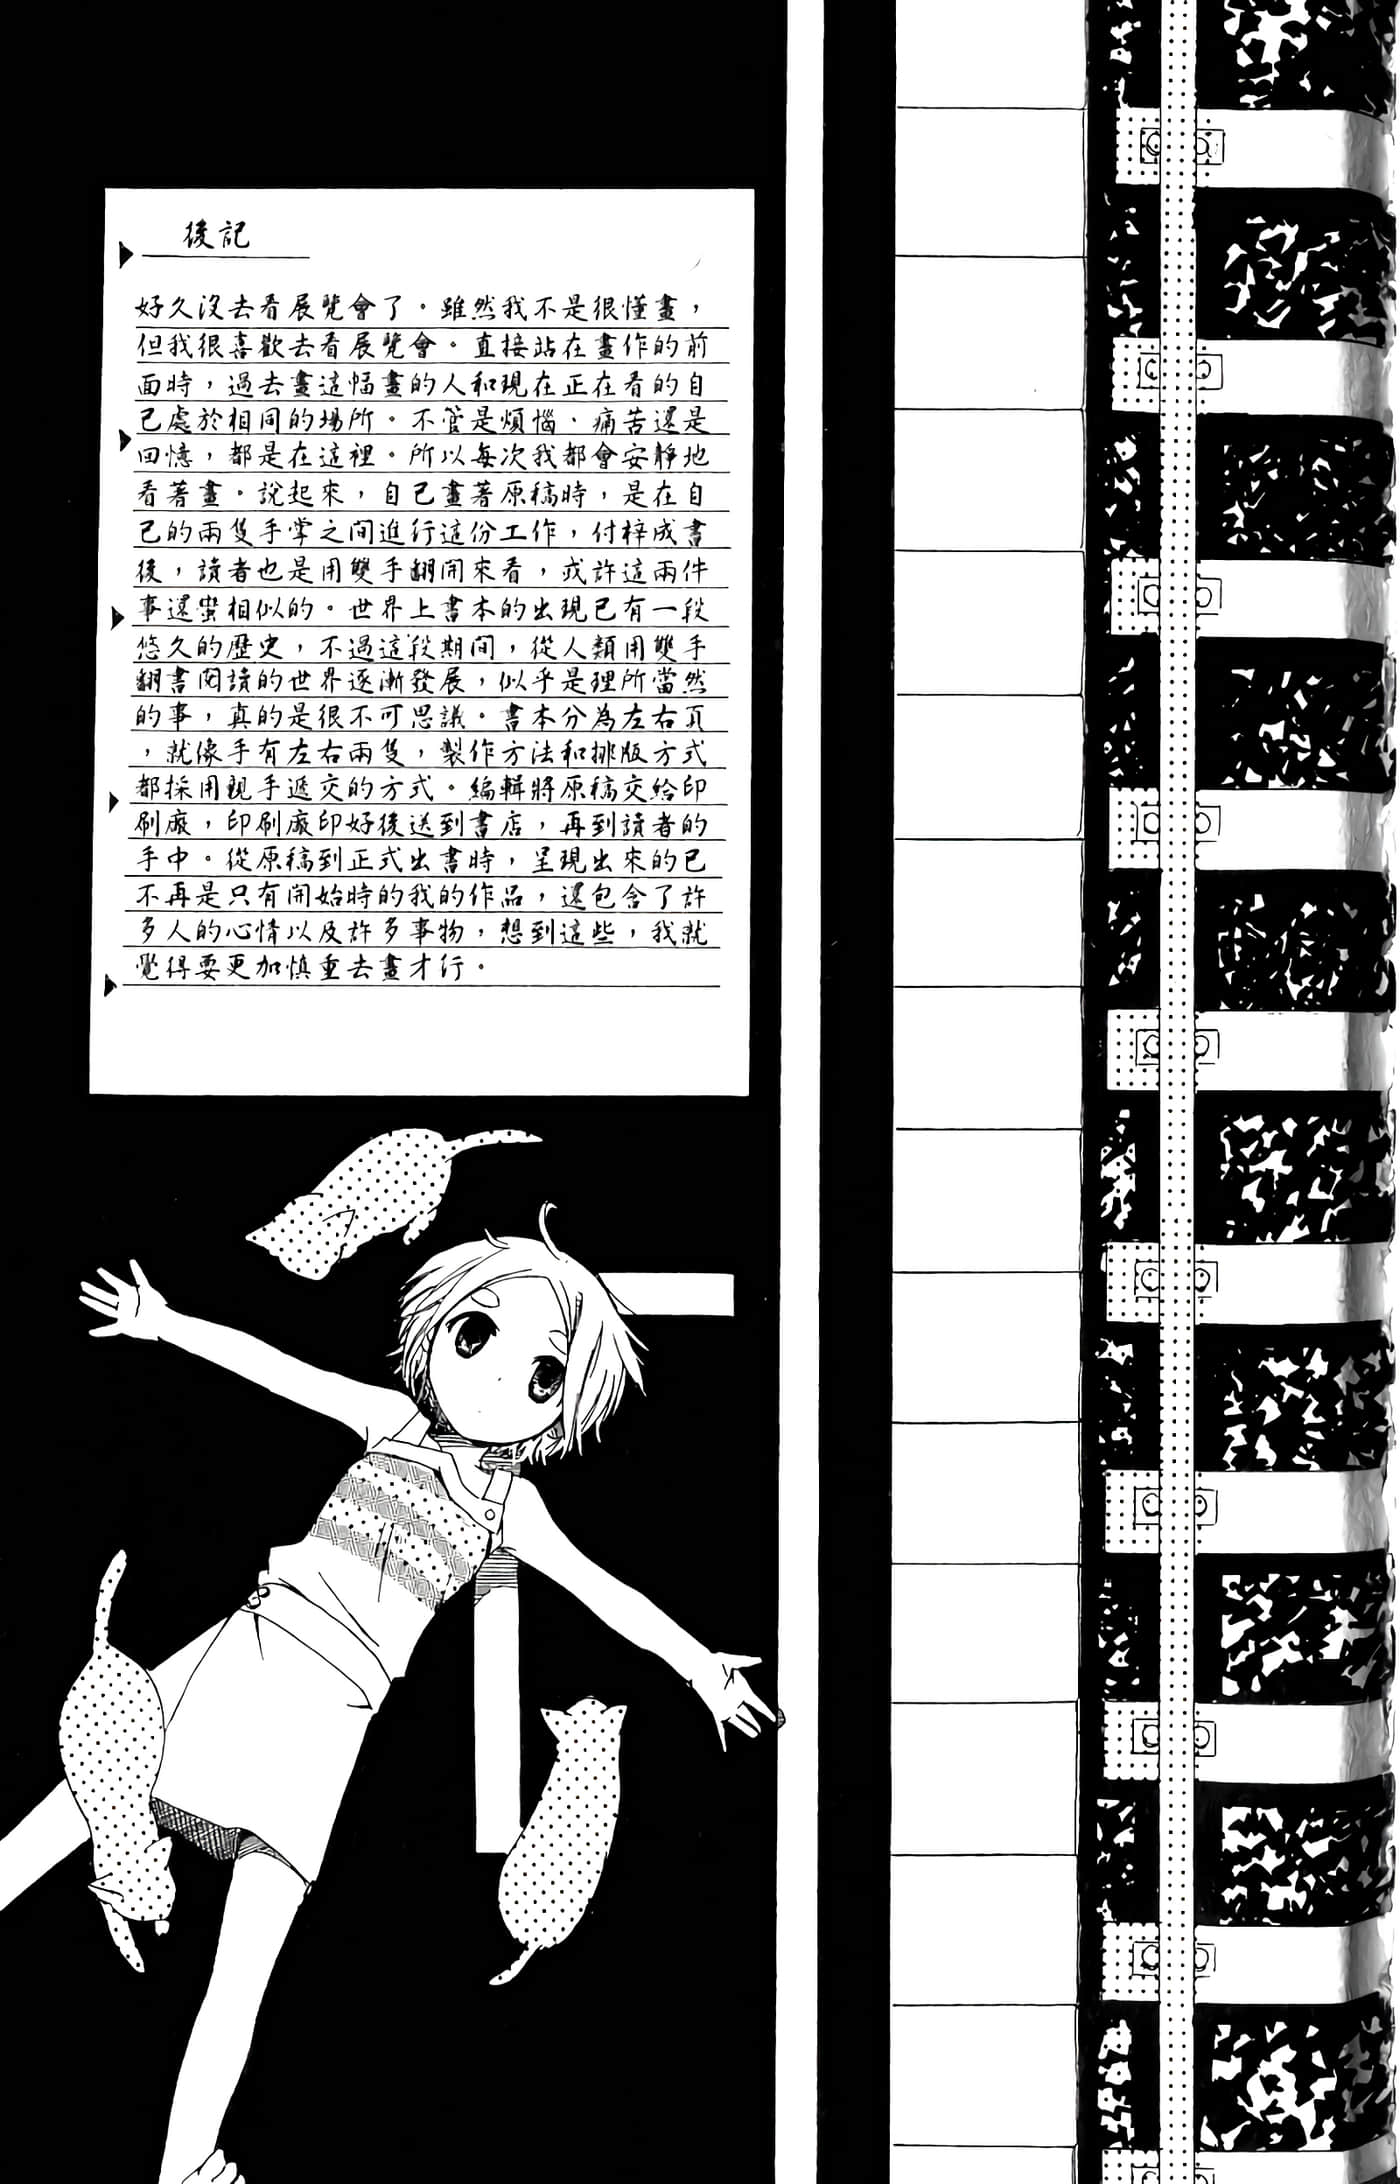 後記
好久沒去看展覽會了。雖然我不是很懂畫，
但我很喜歡去看展覽會。直接站在畫作的前
面時，過去畫這幅畫的人和現在正在看的自
己處於相同的場所。不管是煩惱、痛苦還是
回憶，都是在這裡。所以每次我都會安靜地
看著畫。說起來，自己畫著原稿時，是在自
己的兩隻手掌之間進行這份工作，付梓成書
後，讀者也是用雙手翻開來看，或許這兩件
事還蠻相似的。世界上書本的出現已有一段
悠久的歷史，不過這段期間，從人類用雙手
翻書閱讀的世界逐漸發展，似乎是理所當然
的事，真的是很不可思議。書本分為左右頁
，就像手有左右兩隻，製作方法和排版方式
都採用親手遞交的方式。編輯將原稿交給印
刷廠，印刷廠印好後送到書店，再到讀者的
手中。從原稿到正式出書時，呈現出來的已
不再是只有開始時的我的作品，還包含了許
多人的心情以及許多事物，想到這些，我就
覺得要更加慎重去畫才行。